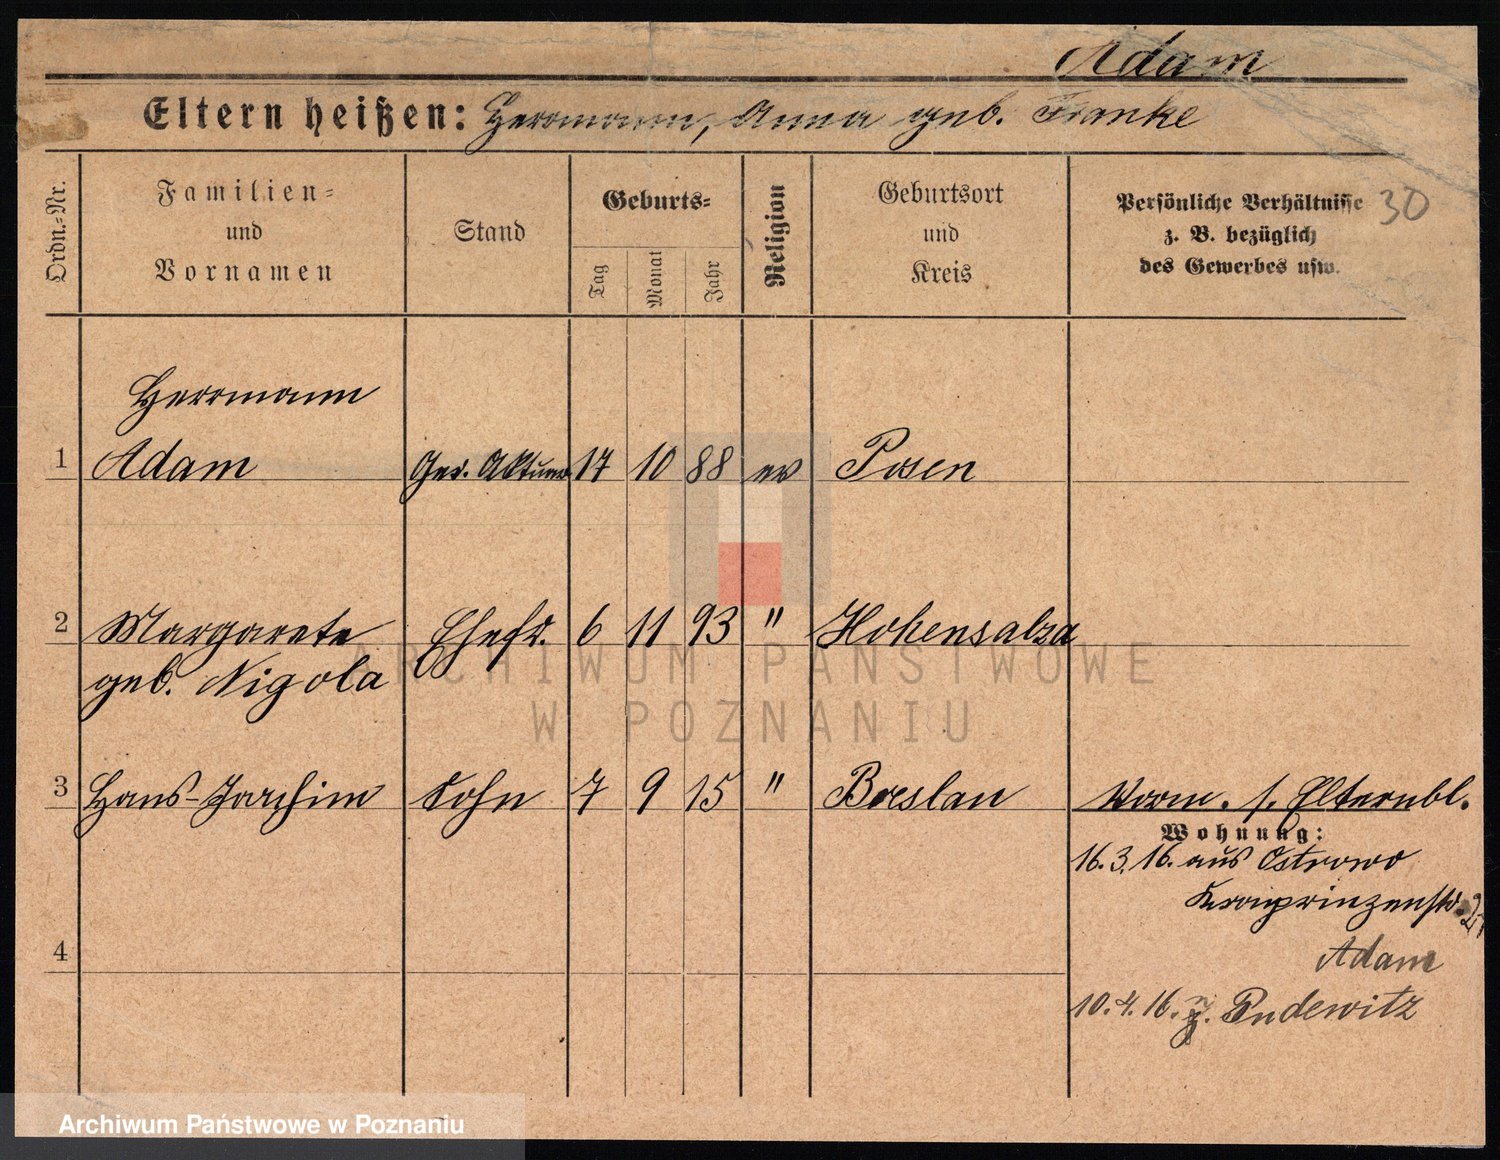 Adam
Eltern heißen: Herrmann, Anna geb. Franke
Ordn.-Nr.
Familien- und Vornamen
Stand
Geburts-
Tag
Monat
Jahr
Religion
Geburtsort und Kreis
Persönliche Verhältnisse 30
z. B. bezüglich
des Gewerbes usw.
Herrmann
1 Adam Ger. Aktuar 17 10 88 ev Posen
2 Margarete Ehefr. 6 11 93 " Hohensalza
geb. Nigola
3 Hans-Joachim Sohn 7 9 15 " Breslau Vorm. s. Elternbl.
Wohnung:
16.3.16. aus Ostrowo
Kronprinzenstr.
4
Adam
10.4.16. n. Pudewitz
ARCHIWUM PAŃSTWOWE
W POZNANIU
Archiwum Państwowe w Poznaniu